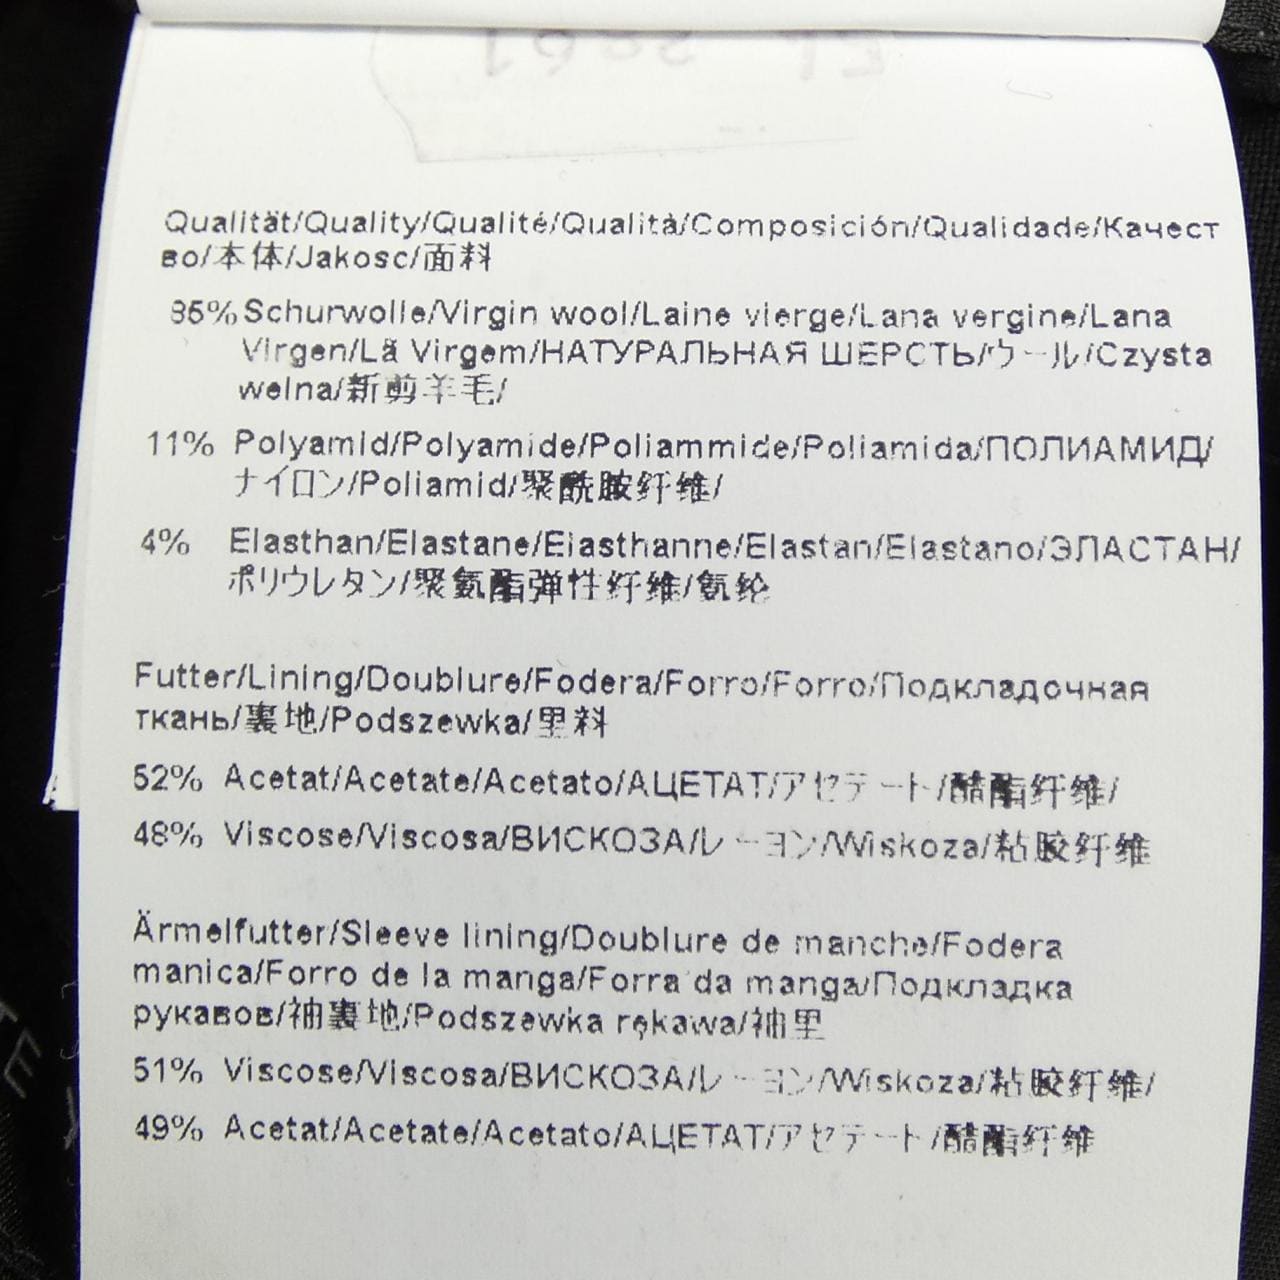 Qualität/Quality/Qualité/Qualità/Composición/Qualidade/Качест
во/本体/Jakosc/面料
85% Schurwolle/Virgin wool/Laine vierge/Lana vergine/Lana
Virgen/Lã Virgem/НАТУРАЛЬНАЯ ШЕРСТЬ/ウール/Czysta
welna/新剪羊毛/
11% Polyamid/Polyamide/Poliammide/Poliamida/ПОЛИАМИД/
ナイロン/Poliamid/聚酰胺纤维/
4% Elasthan/Elastane/Elasthanne/Elastan/Elastano/ЭЛАСТАН/
ポリウレタン/聚氨酯弹性纤维/氨纶
Futter/Lining/Doublure/Fodera/Forro/Forro/Подкладочная
ткань/裏地/Podszewka/里料
52% Acetat/Acetate/Acetato/АЦЕТАТ/アセテート/醋酯纤维/
48% Viscose/Viscosa/ВИСКОЗА/レーヨン/Wiskoza/粘胶纤维
Ärmelfutter/Sleeve lining/Doublure de manche/Fodera
manica/Forro de la manga/Forra da manga/Подкладка
рукавов/袖裏地/Podszewka rękawa/袖里
51% Viscose/Viscosa/ВИСКОЗА/レーヨン/Wiskoza/粘胶纤维/
49% Acetat/Acetate/Acetato/АЦЕТАТ/アセテート/醋酯纤维